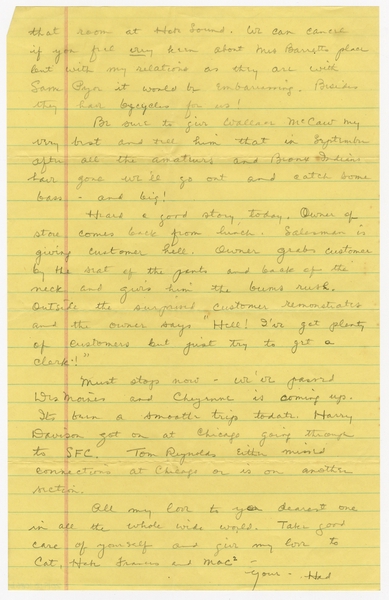 that room at Hate Sound. We can cancel
if you feel very keen about Mrs Barretts place
but with my relations as they are with
Sam it would be embarrassing. Besides
they have bycycles for us!
Be sure to give Wallace McCaw my
very best and tell him that in September
after all the amateurs and Bronx Indians
have gone we'll go out and catch some
bass - and big!
Heard a good story today. Owner of
store comes back from lunch. Salesman is
giving customer hell. Owner grabs customer
by the seat of the pants and back of the
neck and gives him the bums rush.
Outside the surprised customer remonstrates
and the owner says "Hell! I've got plenty
of customers but just try to get a
clerk!"
Must stop now - we've passed
Des Moines and Cheyenne is coming up.
Its been a smooth trip to date. Harry
Davison got on at Chicago going through
to SFC. Tom Reynolds either missed
connections at Chicago or is on another
section.
All my love to you dearest one
in all the whole wide world. Take good
care of yourself and give my love to
Cat, Hate Frances and Mac² -
Your - Had